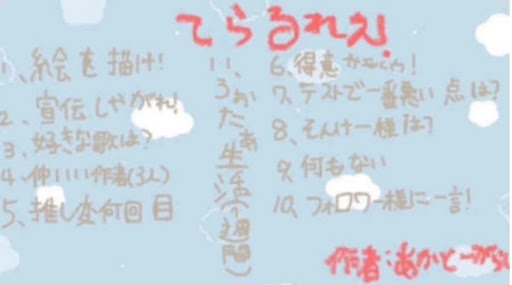 てらるれえ!
1、絵を描け!
2、宣伝しやがれ!
3、好きな歌は?
4、仲いい作者(3人)
5、推し変何回目
6、得意か
7、テストで一番悪い点は?
8、そんけー様は?
9、何もない
10、フォロワー様に一言!
生活(1週間)
作者:あかとーがらし